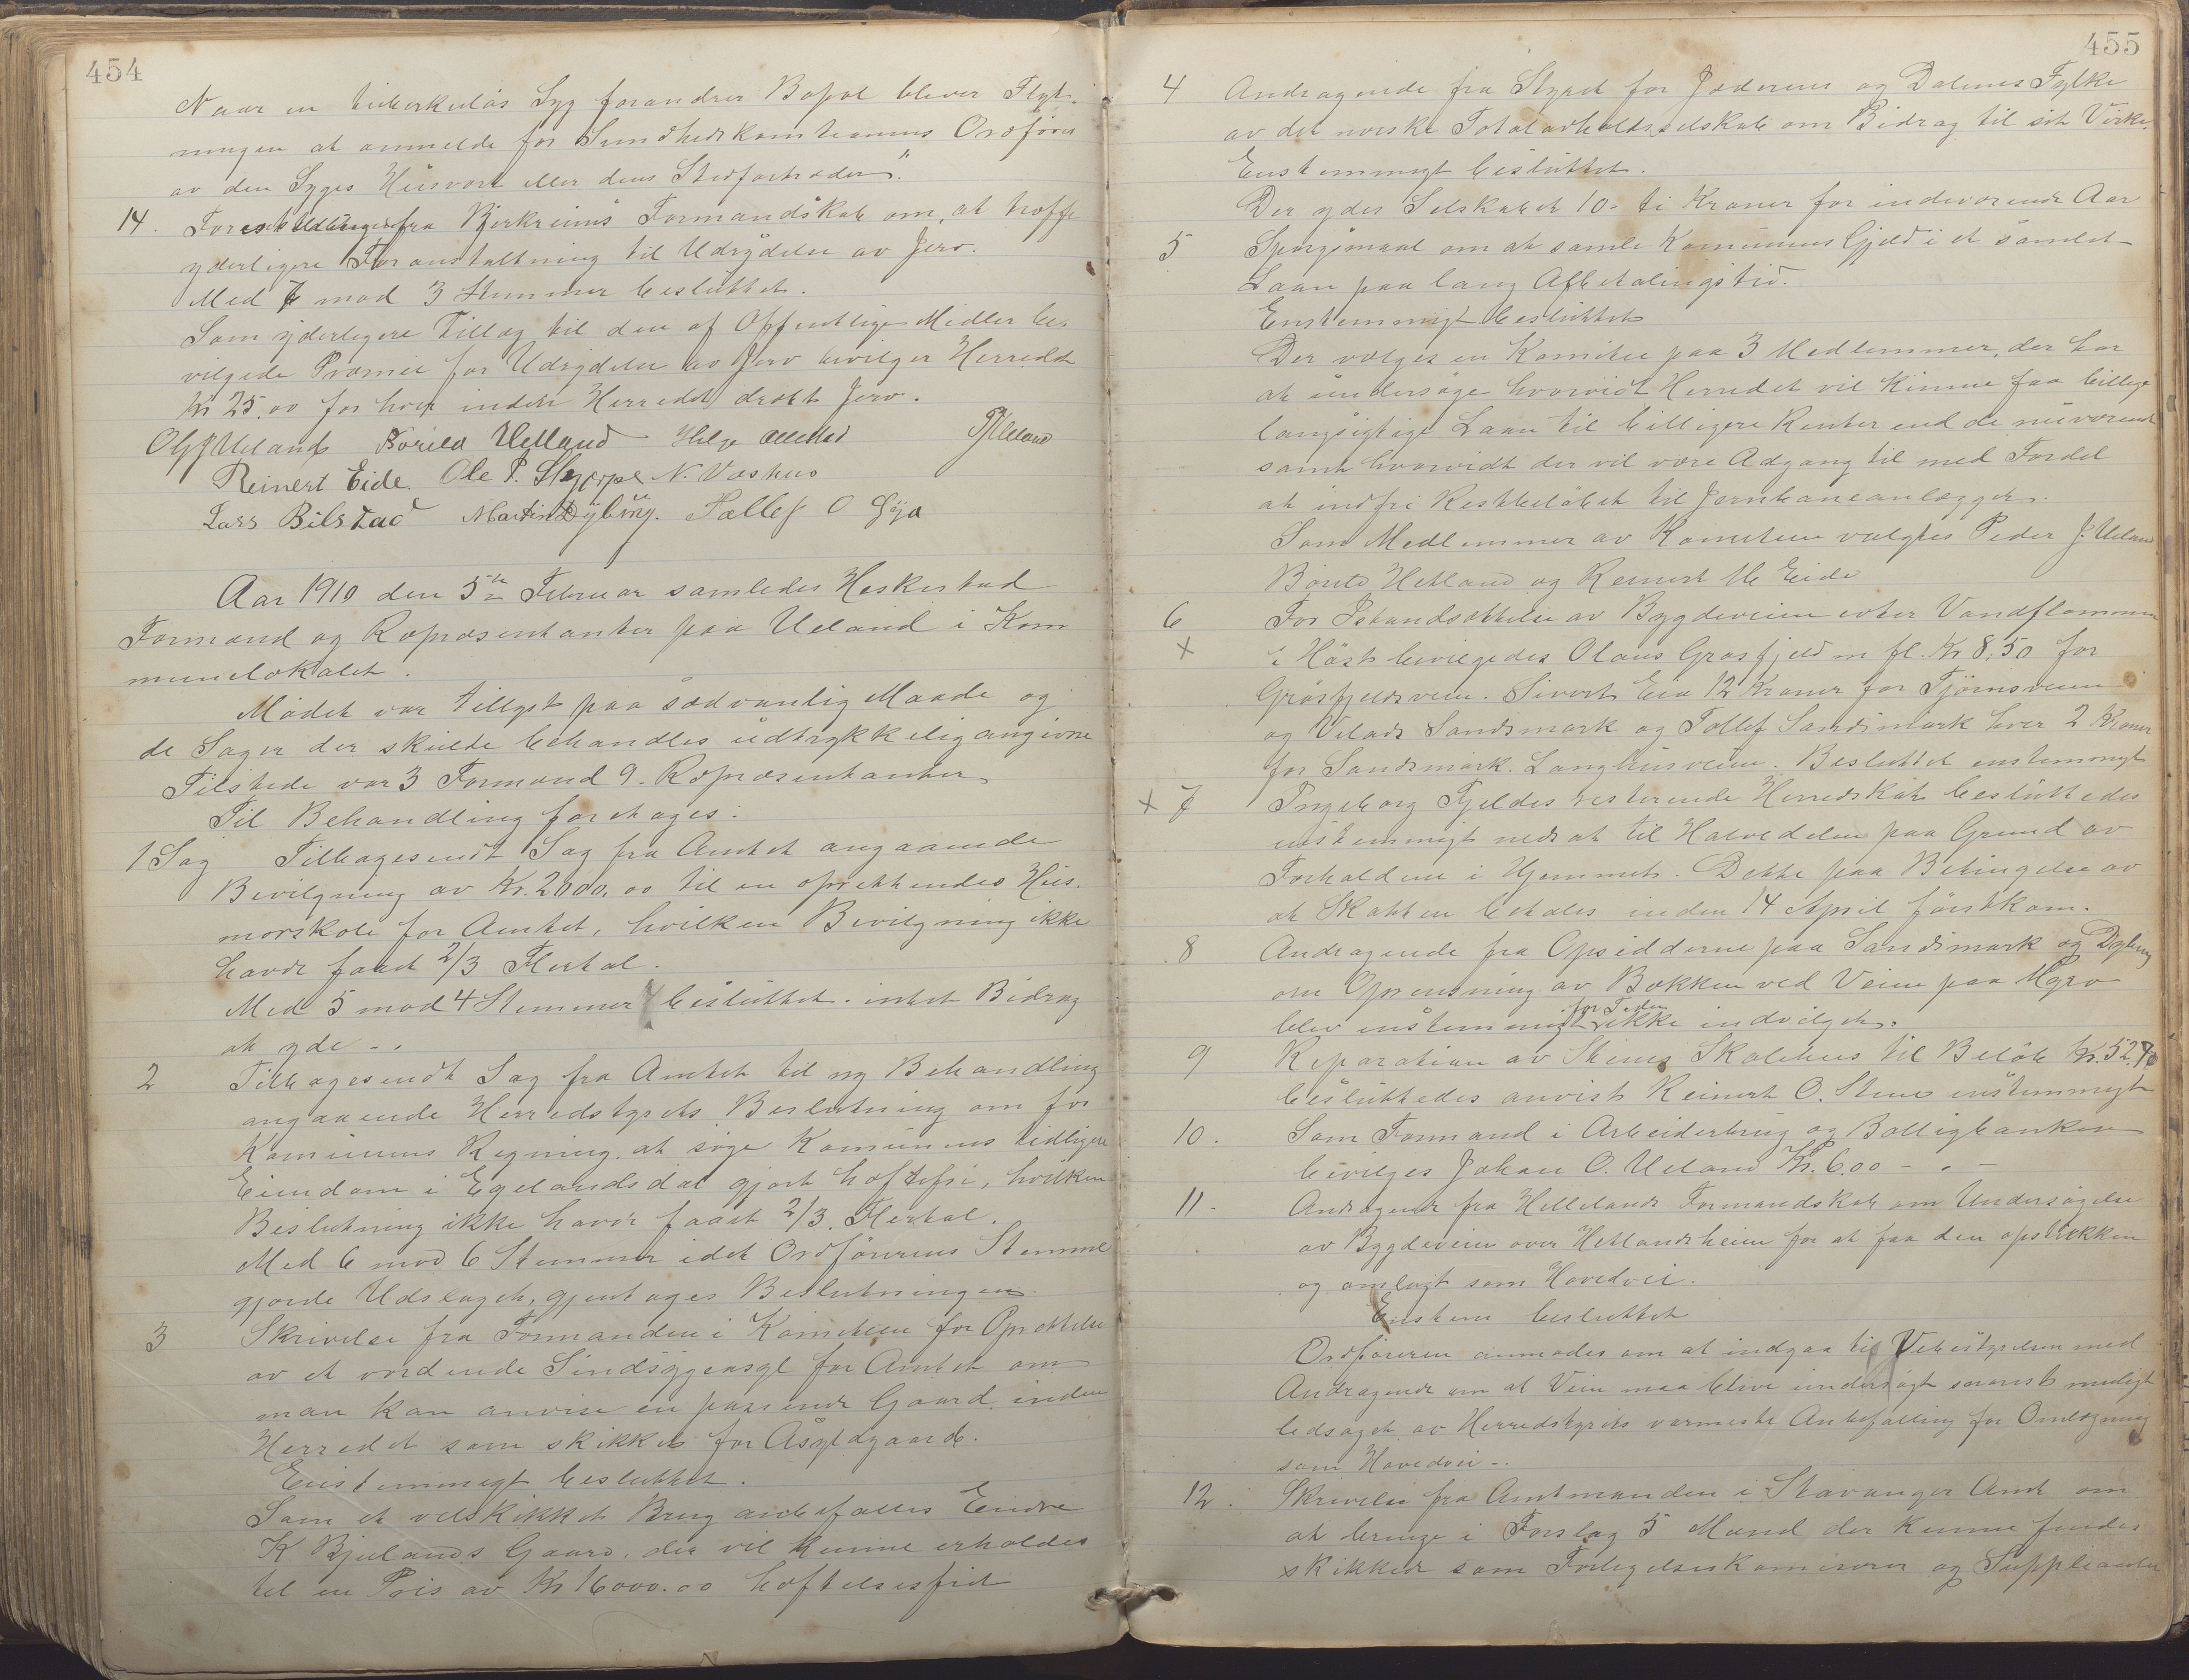 454
Naar en tuberkuløs Syg forandrer Bopæl bliver Flyt-
ningen at anmelde for Sundhedskomiteenns Ordfører
av den Syges Husvært eller dens Stedfortræder".
14. Forestillinger fra Bjerkreims Formandskab om, at træffe
yderligere Foranstaltning til Udrydelse av Jerv.
Med 7 mod 3 Stemmer besluttet.
Som yderligere Tillæg til den af Offentlige Midler be-
vilgede Præmie for Udrydelse av Jerv bevilger Herredet
Kr 25.00 for hver inden Herredet dræbt Jerv.
Helland Helge
Reinert Eide. Ole P. Skjerpe N. Vashus
Lars Bilstad Martin Dybing. Tollef O Eja
Aar 1910 den 5te Februar samledes Heskestad
Formænd og Repræsentanter paa Ueland i Kom
munelokalet.
Mødet var tillyst paa sædvanlig Maade og
de Sager der skulde behandles udtrykkelig angivne
Tilstede var 3 Formænd 9 Repræsentanter
Til Behandling foretages:
1 Sag Tilbagesendt Sag fra Amtet angaaende
Bevilgning av Kr. 2000,00 til en oprettendes Hus-
morskole for Amtet, hvilken Bevilgning ikke
havde faaet 2/3 Flertal.
Med 5 mod 4 Stemmer besluttet. intet Bidrag
at yde -.
2 Tilbagesendt Sag fra Amtet til ny Behandling
angaaende Herredstyrets Beslutning om for
Komunens Regning at søge Komunens tidligere
Eiendom i Egelandsdal gjort hæftefri, hvilken
Beslutning ikke havde faaet 2/3. Flertal.
Med 6 mod 6 Stemmer idet Ordførerens Stemme
gjorde Udslaget, gjentages Beslutningen.
3 Skrivelse fra Formanden i Komiteen for Oprettelse
av et vordende Sindsygeasyl for Amtet om
man kan anvise en passende Gaard inden
Herredet som skikket for Asylgaard.
Enstemmigt besluttet.
Som et velskikket Brug anbefalles Endre
K Bjulands Gaard, der vil kunne erholdes
til en Pris av Kr 16000.00 hæftelsesfrit
455
4 Andragende fra Styret for Jæderens og Dalernes Fylke
av det norske Totalavholdsselskab om Bidrag til sit Virke.
Enstemmigt besluttet.
Der ydes Selskabet 10- ti Kroner for indeværende Aar
5 Spørgsmaal om at samle Komunens Gjeld i et samlet
Laan paa lang Afbetalingstid.
Enstemmigt besluttet
Der vælges en Komitee paa 3 Medlemmer, der har
at undersøge hvorvidt Herredet vil kunne faa billige
langsigtige Laan til billigere Renter end de nuværende
samt hvorvidt der vil være Adgang til med Fordel
at indfri Restbeløbet til Jernbaneanlægget.
Som Medlemmer av Komiteen valgtes Peder J. Ueland
Børild Hetland og Reinert M Eide
6 For Istandsættelse av Bygdeveien evter Vandflommen
x i Høst bevilgedes Olaus Grøsfjeld m fl. Kr 8.50 for
Grøsfjeldsveien. Sivert Eia 12 Kroner for Tjørnsveien
og Velads Sandsmark og Tollef Sandsmark hver 2 Kroner
for Sandsmark. Langhusveien. Besluttet enstemmigt
x 7 Ingeborg Fjeldes resterende Herredskat besluttedes
enstemmigt nedsat til Halvedelen paa Grund av
Forholdene i Hjemmet. Dette paa Betingelse av
at Skatten betales inden 14 April førstkom.
8 Andragende fra Opsidderne paa Sandsmark og Dybing
om Oprensning av Bækken ved Veien paa
for Tiden
blev enstemmigt ikke indvilget.
9 Reparation av Stenes Skolehus til Beløb Kr. 52.70
besluttedes anvist Reinert O. Stene enstemmigt
10. Som Formand i Arbeiderbrug og Boligbanken
bevilges Johan O. Ueland Kr. 6.00 - . -
11. Andragende fra Hellelands Formandskab om Undersøgelse
av Bygdeveien over Hetlandsheien for at faa den opstukken
og omlagt som Hovedvei.
Enstem besluttet
Ordføreren anmodes om at indgaa til Veibestyrelsen med
Andragende om at Veien maa blive undersøgt snarest muligt
ledsaget av Herredstyrets varmeste Anbefalling for Omlægning
som Hovedvei -.
12. Skrivelse fra Amtmanden i Stavanger Amt om
at bringe i Forslag 5 Mænd der kunne findes
skikket som Forligelseskomisærer og Suppleanter